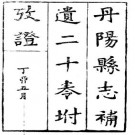 丹陽縣志補
遺二十卷坿
攷證
丁卯五月